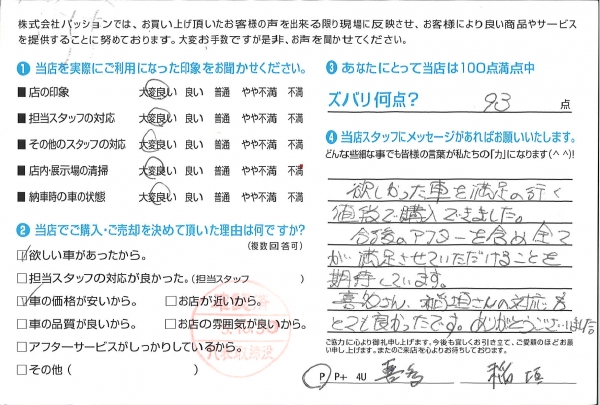 株式会社パッションでは、お買い上げ頂いたお客様の声を出来る限り現場に反映させ、お客様により良い商品やサービス
を提供することに努めております。大変お手数ですが是非、お声を聞かせてください。
1 当店を実際にご利用になった印象をお聞かせください。
■ 店の印象 大変良い 良い 普通 やや不満 不満
■ 担当スタッフの対応 大変良い 良い 普通 やや不満 不満
■ その他のスタッフの対応 大変良い 良い 普通 やや不満 不満
■ 店内・展示場の清掃 大変良い 良い 普通 やや不満 不満
■ 納車時の車の状態 大変良い 良い 普通 やや不満 不満
2 当店でご購入・ご売却を決めて頂いた理由は何ですか?
(複数回答可)
☑欲しい車があったから。
□担当スタッフの対応が良かった。(担当スタッフ )
☑車の価格が安いから。 □お店が近いから。
□車の品質が良いから。 □お店の雰囲気が良いから。
□アフターサービスがしっかりしているから。
□その他( )
3 あなたにとって当店は100点満点中
ズバリ何点? 93 点
4 当店スタッフにメッセージがあればお願いいたします。
どんな些細な事でも皆様の言葉が私たちの「力」になります(^^)!
欲しかった車を満足の行く
値段で購入できました。
今後のアフターを含め全て
が満足させていただけることを
期待しています。
喜多さん、稲垣さんの対応も
とても良かったです。ありがとうございました
ご協力に心より御礼申し上げます。今後も宜しくお引き立て、ご愛顧のほどお願
い申し上げます。またのご来店を心よりお待ちしております。
P P+ 4U 喜多 稲垣